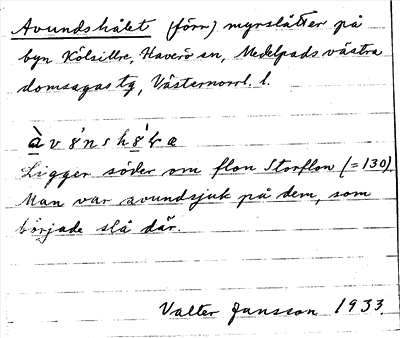 Avundshålet (förr) myrslåtter på
byn Kölsillre, Haverö sn, Medelpads västra
domsagas tg, Västernorrl. l.
Ligger söder om flon Storflon (=130).
Man var avundsjuk på dem, som
började slå där.
Valter Jansson 1933.